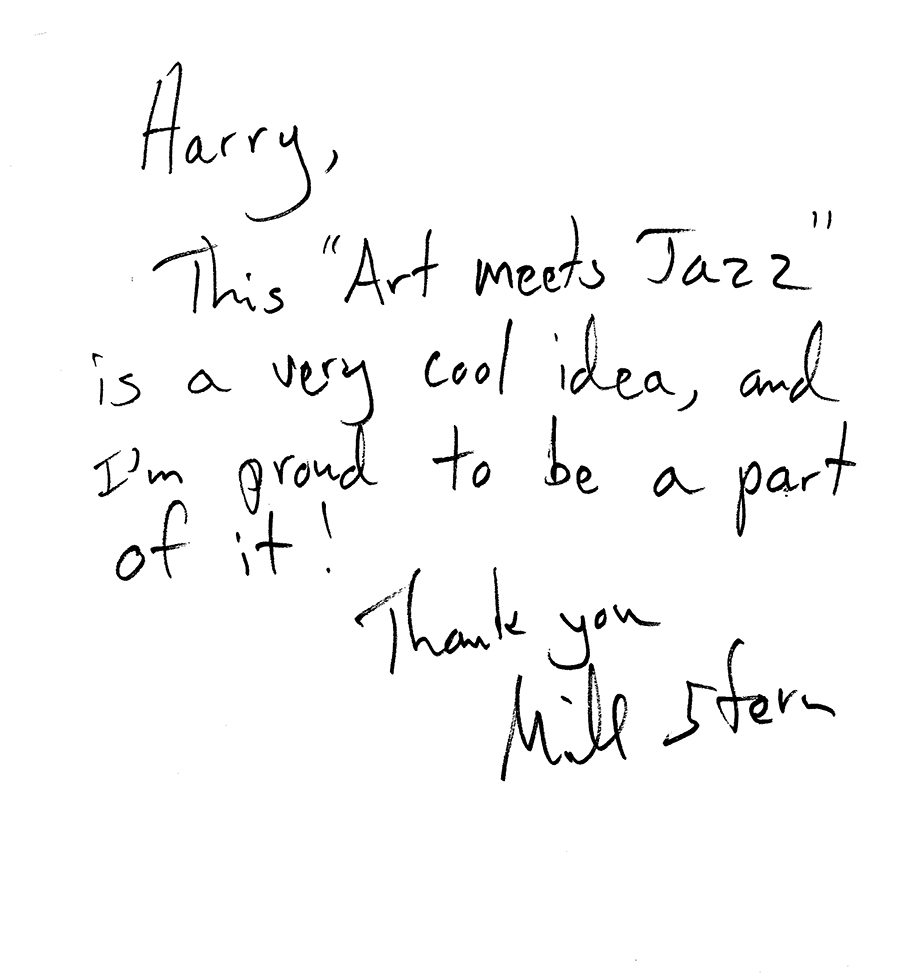 Harry,
This "Art meets Jazz"
is a very cool idea, and
I'm proud to be a part
of it!
Thank you
Stern